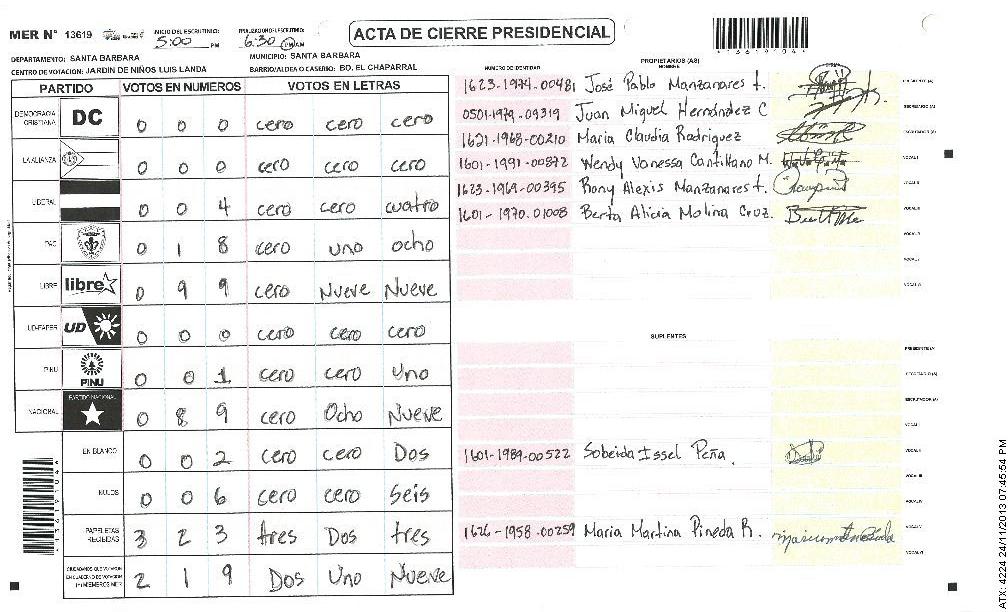 MER N° 13619
INICIO DEL ESCRUTINIO: 5:00 PM
FINALIZACION ESCRUTINIO: 6:30 PM AM
ACTA DE CIERRE PRESIDENCIAL
DEPARTAMENTO: SANTA BARBARA
MUNICIPIO: SANTA BARBARA
CENTRO DE VOTACION: JARDIN DE NIÑOS LUIS LANDA
BARRIO/ALDEA O CASERIO: BO. EL CHAPARRAL
PARTIDO VOTOS EN NUMEROS VOTOS EN LETRAS
DEMOCRACIA CRISTIANA DC 0 0 0 cero cero cero
LA ALIANZA 0 0 0 cero cero cero
LIBERAL 0 0 4 cero cero cuatro
PAC 0 1 8 cero uno ocho
LIBRE libre 0 9 9 cero Nueve Nueve
UD-FAPER UD 0 0 0 cero cero cero
PINU PINU 0 0 1 cero cero Uno
NACIONAL PARTIDO NACIONAL 0 8 9 cero Ocho Nueve
EN BLANCO 0 0 2 cero cero Dos
NULOS 0 0 6 cero cero Seis
PAPELETAS RECIBIDAS 3 2 3 tres Dos tres
CIUDADANOS QUE VOTARON EN CUADERNO DE VOTACION (+) MIEMBROS MER 2 1 9 Dos Uno Nueve
PROPIETARIOS (AS)
NUMERO DE IDENTIDAD NOMBRE FIRMA
1623-1974-00481 José Pablo Manzanares t. PRESIDENTE (A)
0501-1979-09319 Juan Miguel Hernández C SECRETARIO (A)
1621-1968-00210 Maria Claudia Rodriguez ESCRUTADOR (A)
1601-1991-00872 Wendy Vanessa Cantillano M. VOCAL I
1623-1969-00395 Rony Alexis Manzanares t. VOCAL II
1601-1970-01008 Berta Alicia Molina Cruz. VOCAL III
VOCAL IV
VOCAL V
VOCAL VI
SUPLENTES
PRESIDENTE (A)
SECRETARIO (A)
ESCRUTADOR (A)
VOCAL I
1601-1989-00522 Sobeida Issel Peña. VOCAL II
VOCAL III
VOCAL IV
1626-1958-00259 Maria Martina Pineda R. VOCAL V
VOCAL VI
ATX: 4224 24/11/2013 07:45:54 PM